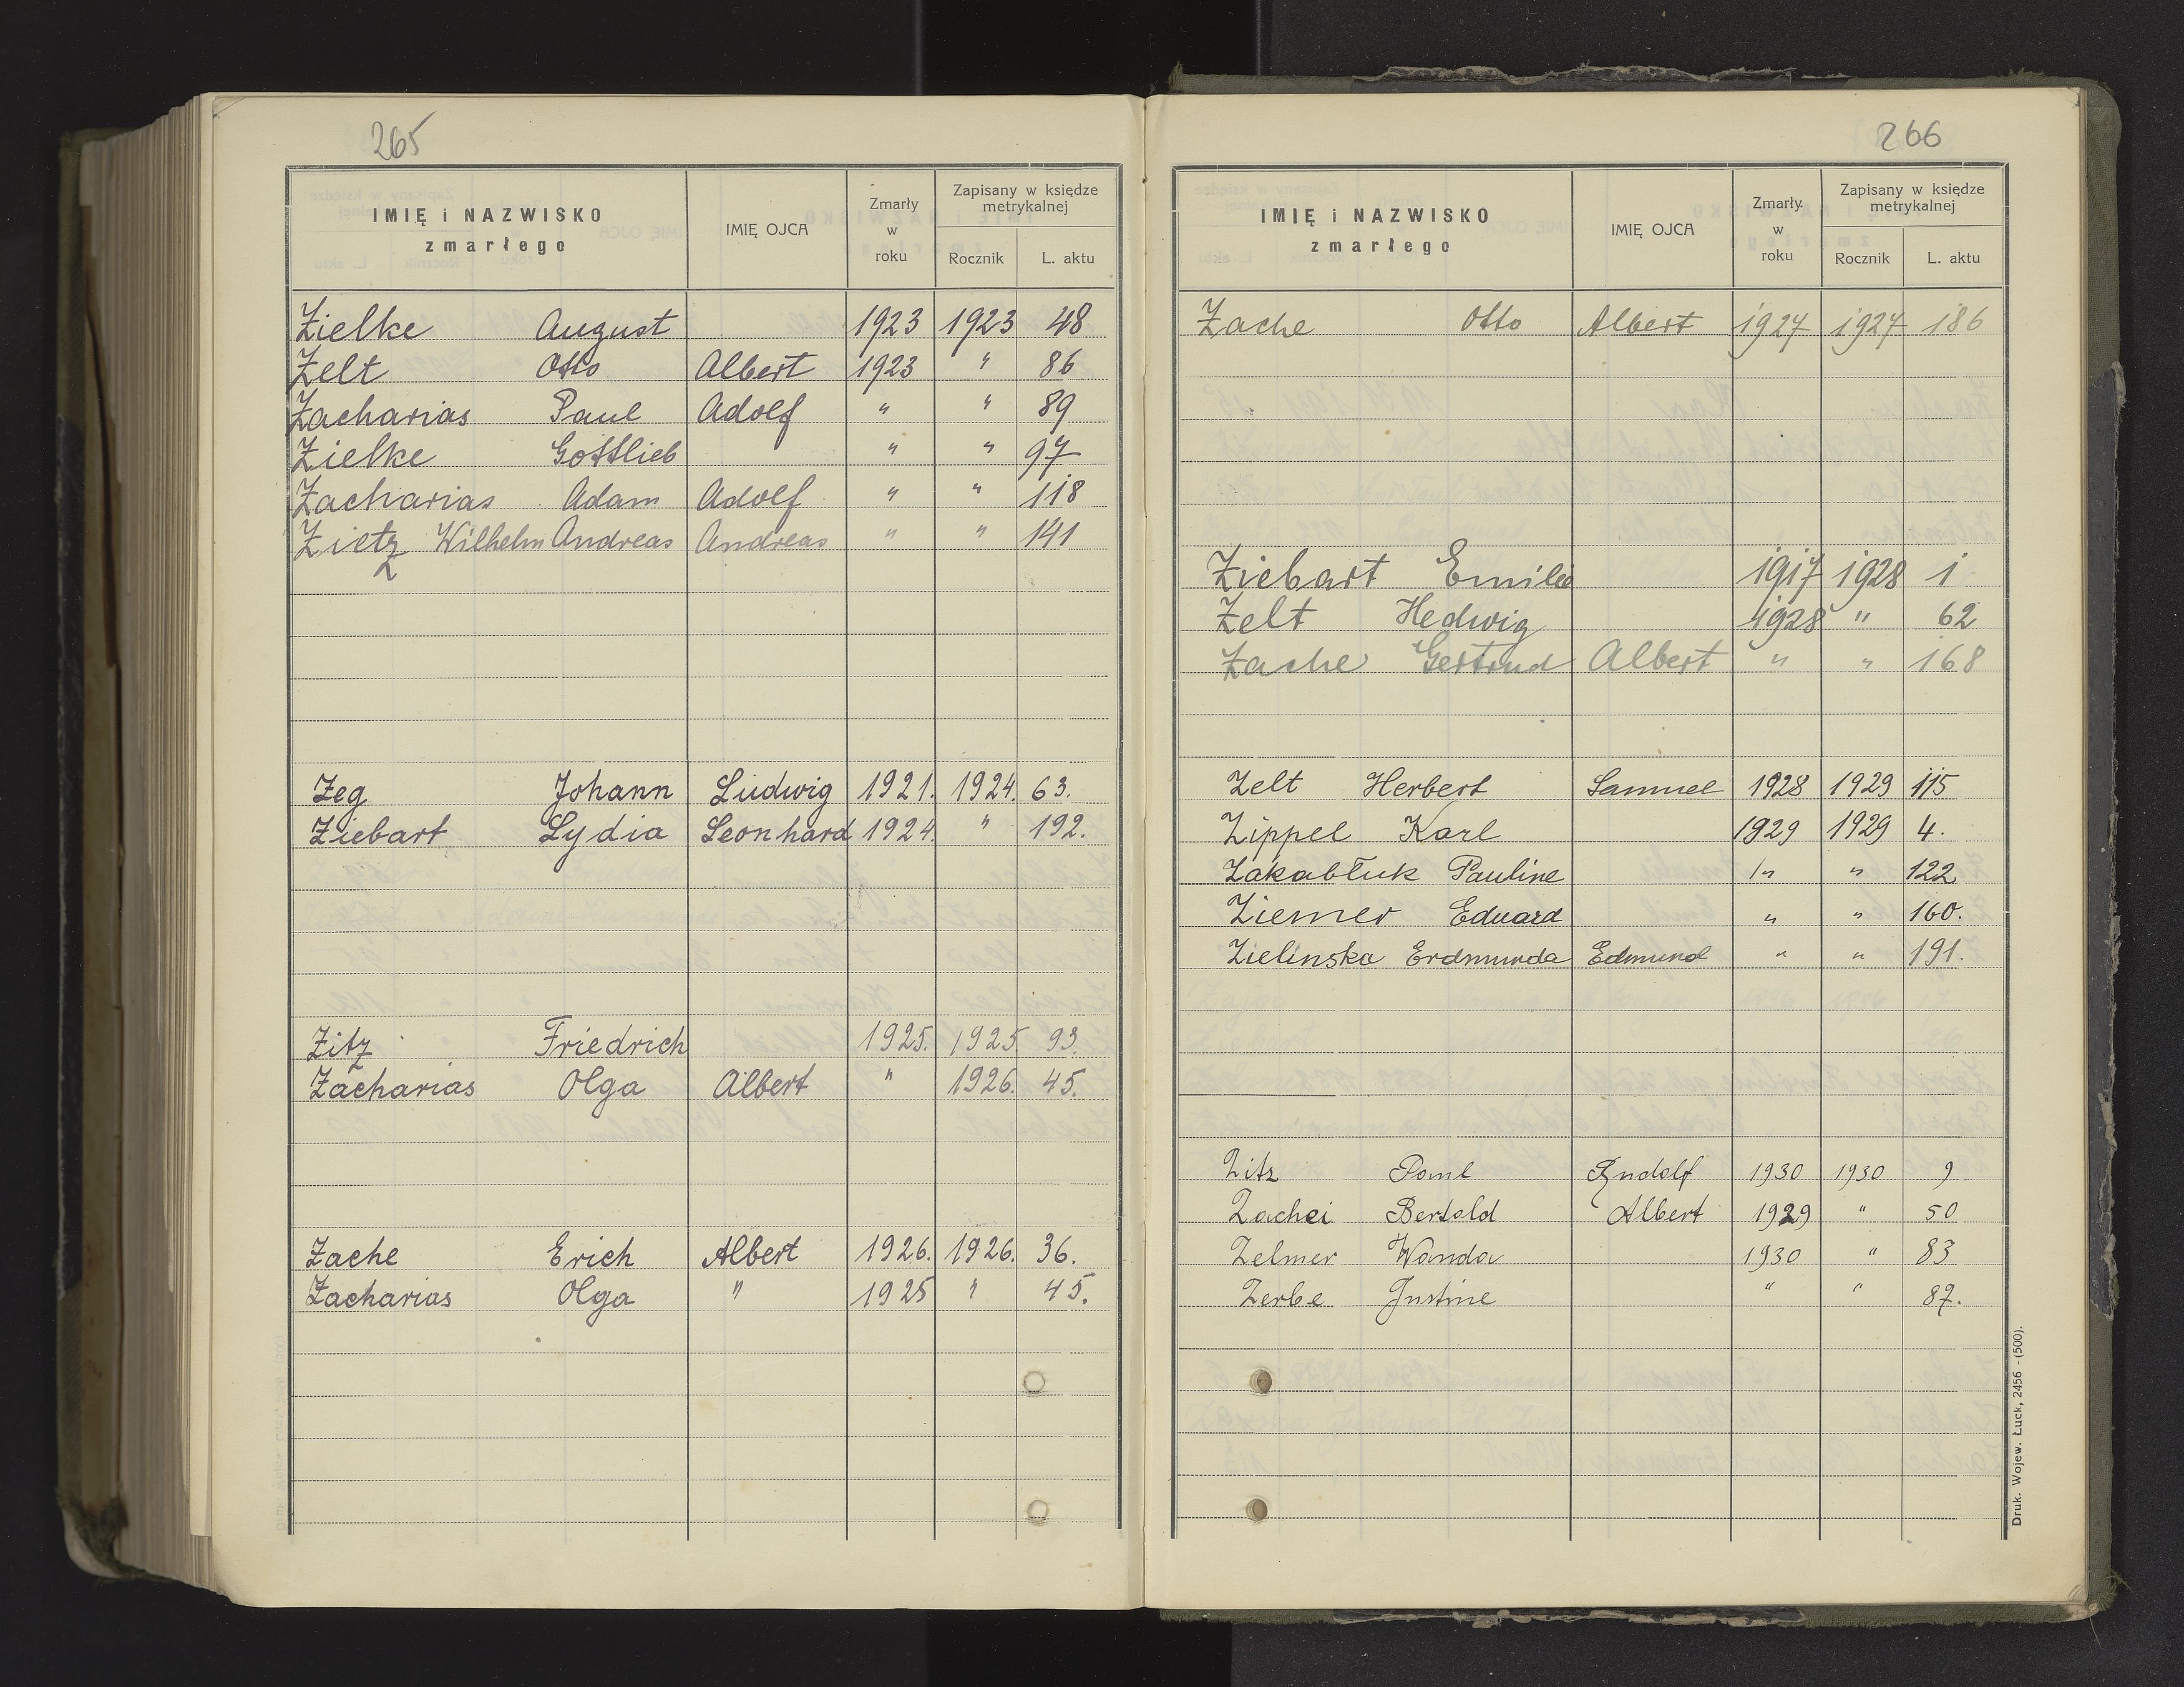 265
IMIĘ i NAZWISKO zmarłego IMIĘ OJCA Zmarły w roku Zapisany w księdze metrykalnej Rocznik L. aktu
Zielke August 1923 1923 48
Zelt Otto Albert 1923 " 86
Zacharias Paul Adolf " " 89
Zielke Gottlieb " " 97
Zacharias Adam Adolf " " 118
Zietz Wilhelm Andreas Andreas " " 141
Zeg Johann Ludwig 1921. 1924. 63.
Ziebart Lydia Leonhard 1924. " 192.
Zitz Friedrich 1925. 1925 93.
Zacharias Olga Albert " 1926. 45.
Zache Erich Albert 1926. 1926. 36.
Zacharias Olga " 1925 " 45.
266
IMIĘ i NAZWISKO zmarłego IMIĘ OJCA Zmarły w roku Zapisany w księdze metrykalnej Rocznik L. aktu
Zache Otto Albert 1927 1927 186
Ziebart Emilie 1917 1928 1
Zelt Hedwig 1928 " 62
Zache Gertrud Albert " " 168
Zelt Herbert Samuel 1928 1929 115
Zippel Karl 1929 1929 4.
Zakabłuk Pauline " " 122
Ziemer Eduard " " 160.
Zielinska Erdmunda Edmund " " 191.
Zitz Paul Rudolf 1930 1930 9
Zachei Bertold Albert 1929 " 50
Zelmer Wanda 1930 " 83
Zerbe Justine " " 87.
Druk. Wojew. Łuck, 2456 - (500).